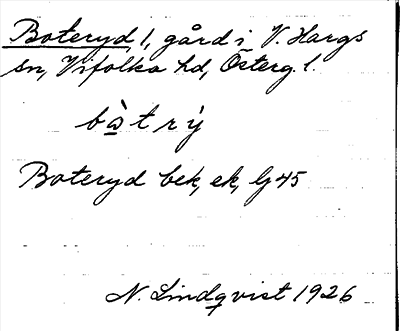 Boteryd 1, gård i V. Hargs
sn, Vifolka hd, Österg. l.
bò̲trý
Boteryd bek, ek, Lj 45
N. Lindqvist 1926